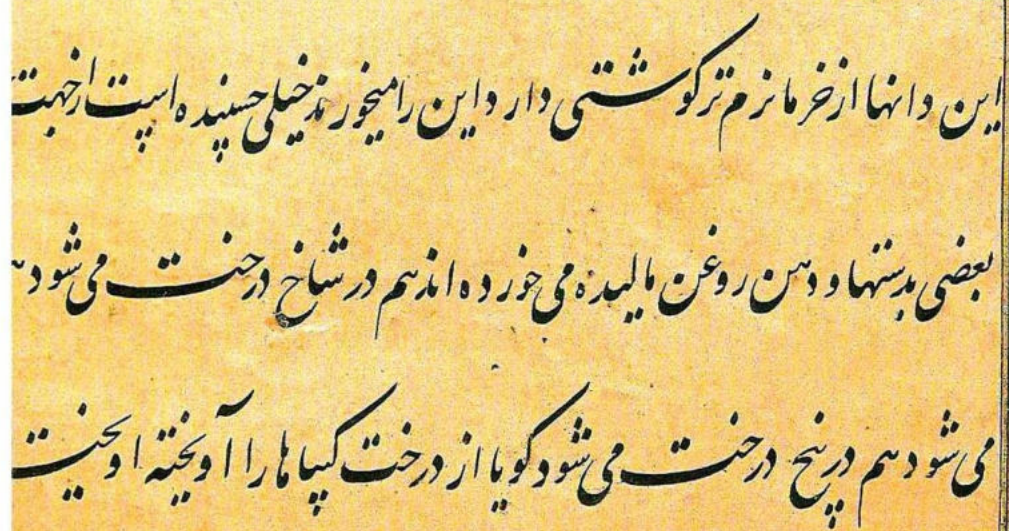 این دانها از خرما نرم تر گوشتی دارد این را میخورند خیلی چسپنده است از جهت
بعضی بدستها و دهن روغن مالیده می خورده اند هم در شاخ درخت می شود
می شود هم در بیخ درخت می شود کویا از درخت کیپاها را آویخته اویخت